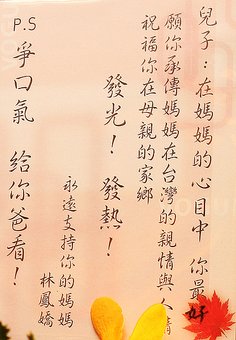 兒子：在媽媽的心目中 你最好
願你承傳媽媽在台灣的親情與人情
祝福你在母親的家鄉
發光！ 發熱！
永遠支持你的媽媽
林鳳嬌
P.S
爭口氣 給你爸看！